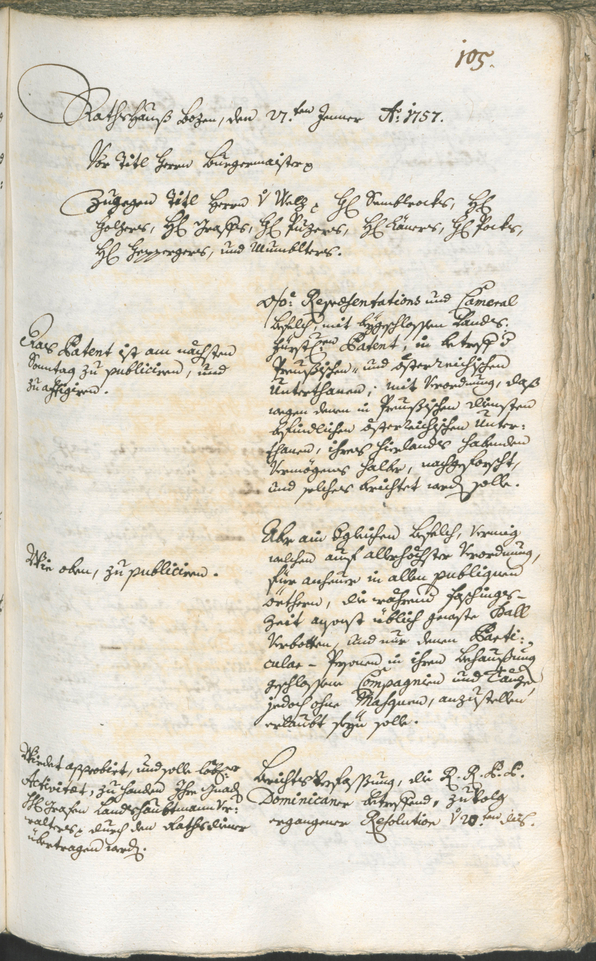 105.
Rathshauß Bozen, den 27.ten Jenner Ao: 1757.
Vor Titl Herrn Burgermaister
Zugegen Titl Herrn v Welz, HE Sembleocks, HE
Golzers, HE Grafens, HE Puzers, HE Häners, HE Pocks,
HE Gepppergers, und Mumblters.
Das Patent ist am nächsten
Sonntag zu publiciren, und
zu affigiren.
Repræsentations und Cameral
Befelch, mit beygeschlossen Landes-
fürstlen Patent, in betreff
Preußischen- und österreichischen
Unterthanen; mit Verordnung, daß
wegen denen in Preußischen diensten
befindlichen österreichischen Unter-
thanen, ihres hierlands habenden
Vermögens halber, nachgeforscht,
und solches berichtet werden solle.
Wie oben, zu publiciren.
Aber ain dergleichen Befelch, vermög
welchen auf allerhöchste Verordnung,
für anheuer in allen publiquen
örthern, die während Faschings-
zeit ansonst üblich geweste Ball
Verbotten, und nur denen Parti-
cular-Personen in ihren Behaußung
geschlossene Compagnien und Tänze,
jedoch ohne Masquen, anzustellen
erlaubt seyn solle.
Wirdet approbirt, und solle löbl:
Activität, zu handen Ihro Gnaden
HE Grafen Landtshaubtmann Ver-
walters, durch den Rathsdiener
übertragen werden.
Berichts Verfassung, die R. R. P. P.
Dominicaner betreffend, zufolg
ergangener Resolution v 20.ten dis.